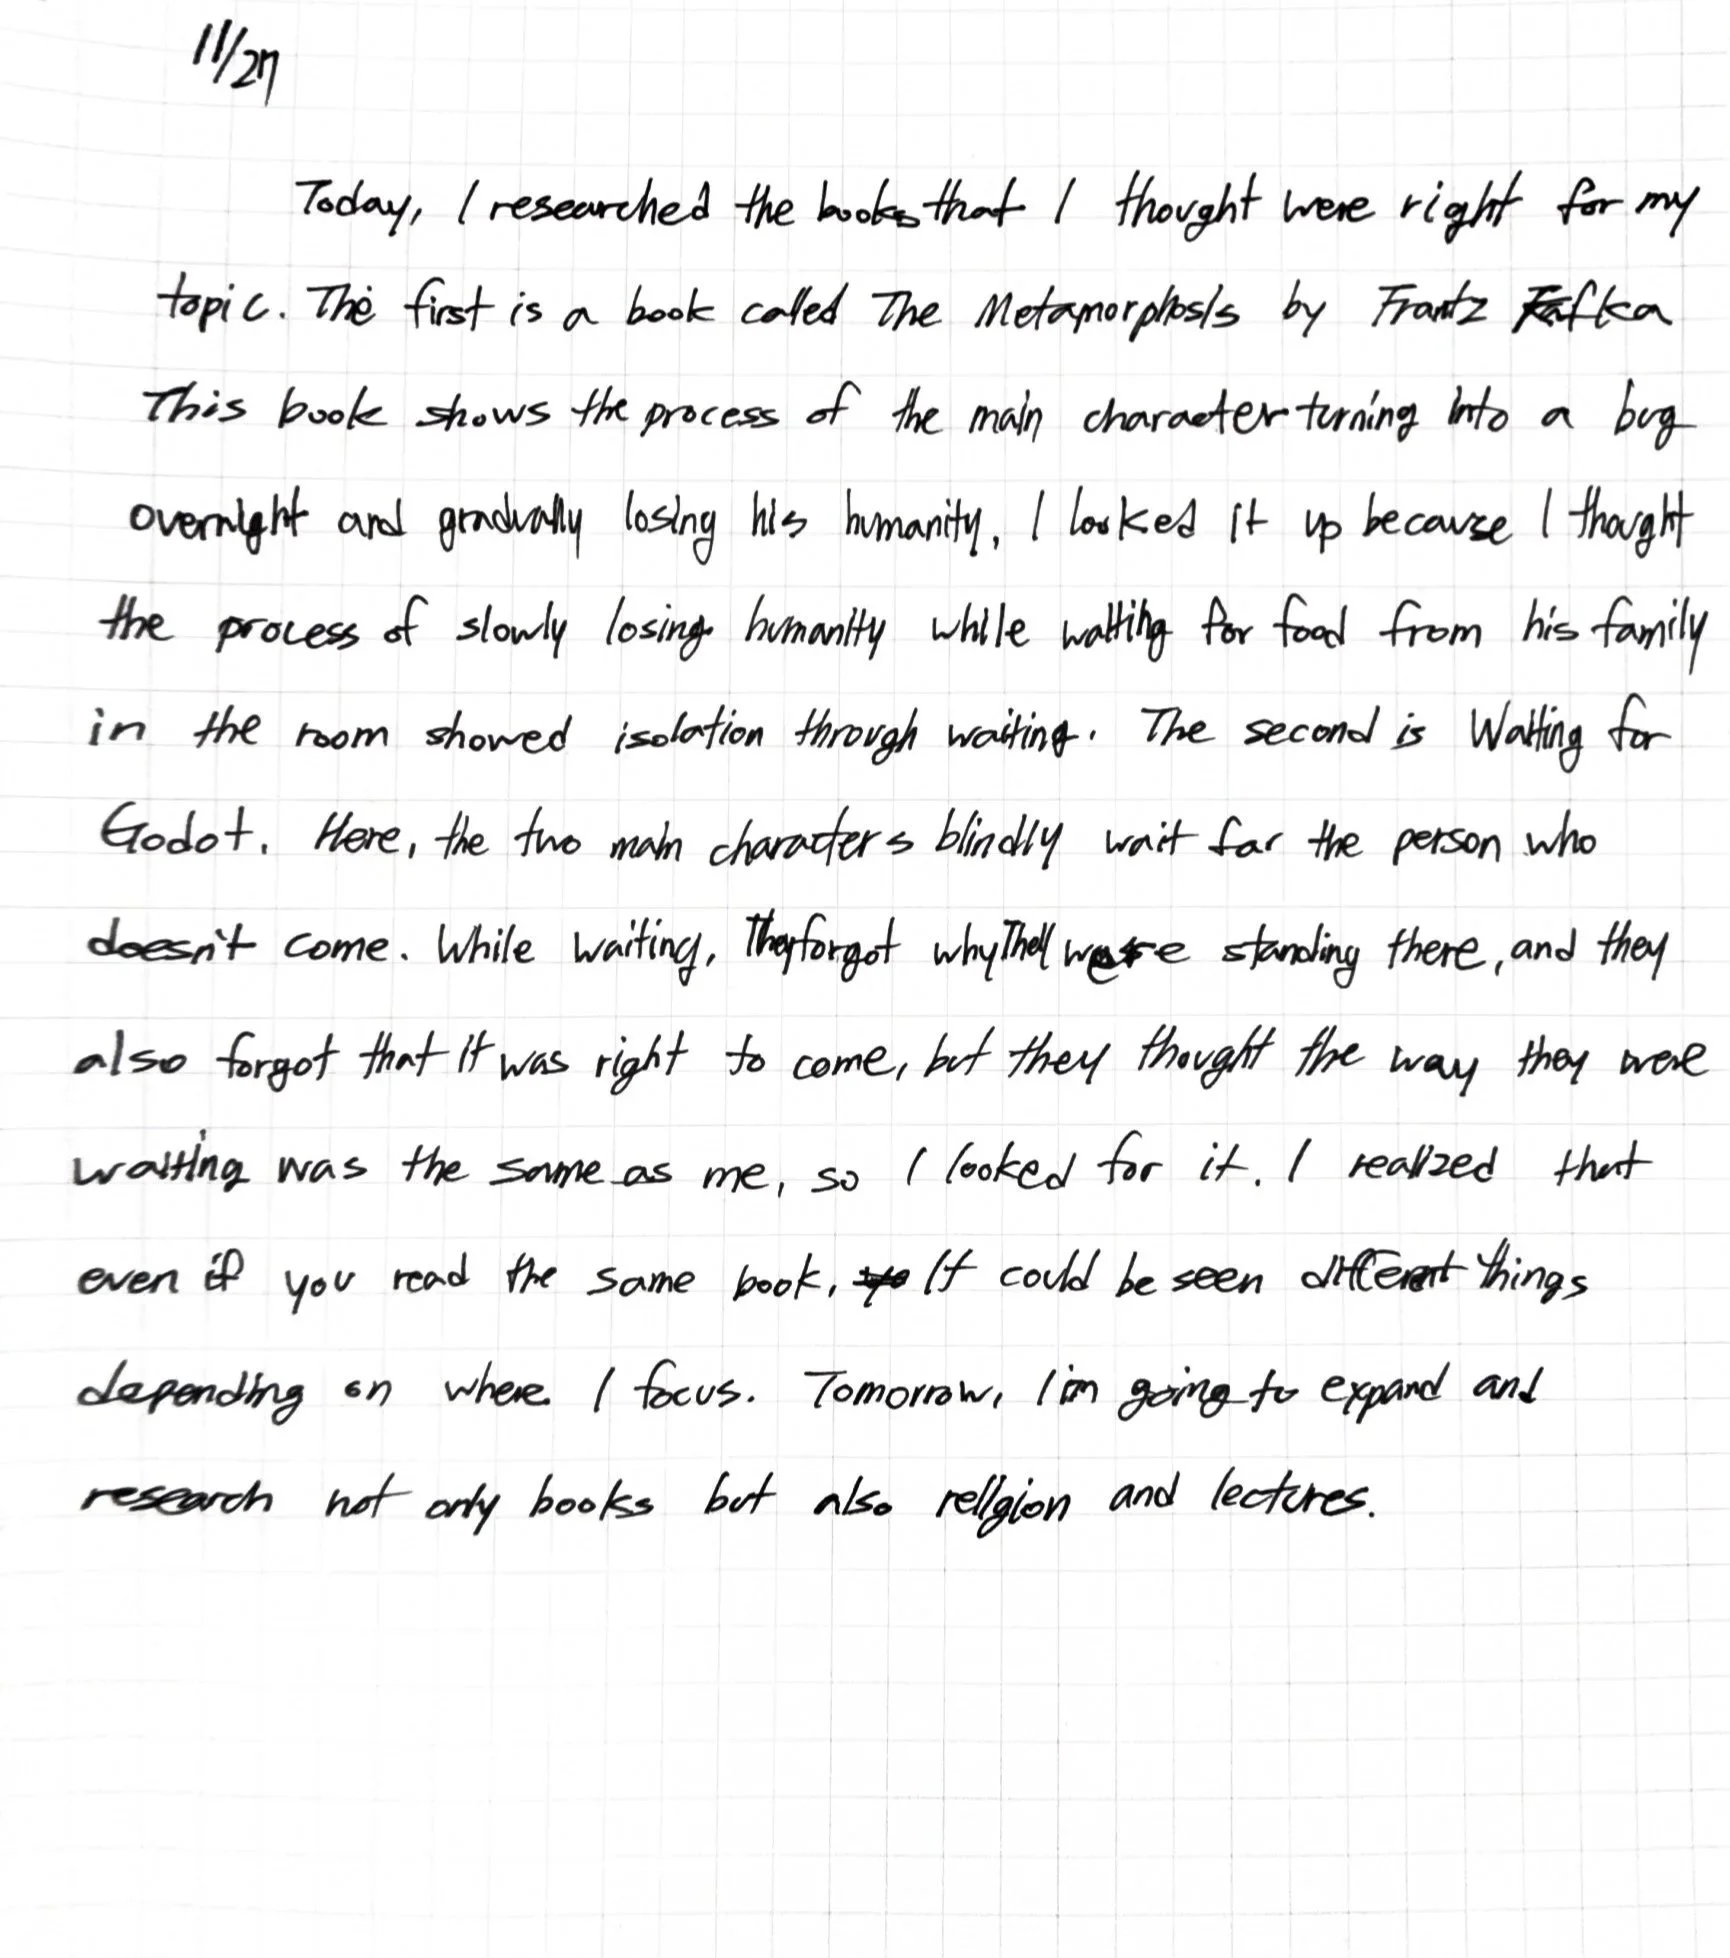 11/27
Today, I researched the books that I thought were right for my
topic. The first is a book called The Metamorphosis by Frantz Kafka
This book shows the process of the main character turning into a bug
overnight and gradually losing his humanity, I looked it up because I thought
the process of slowly losing humanity while waiting for food from his family
in the room showed isolation through waiting. The second is Waiting for
Godot. Here, the two main characters blindly wait for the person who
doesn't come. While waiting, They forgot why They were standing there, and they
also forgot that it was right to come, but they thought the way they were
waiting was the same as me, so I looked for it. I realized that
even if you read the same book, It could be seen different things
depending on where I focus. Tomorrow, I'm going to expand and
research not only books but also religion and lectures.